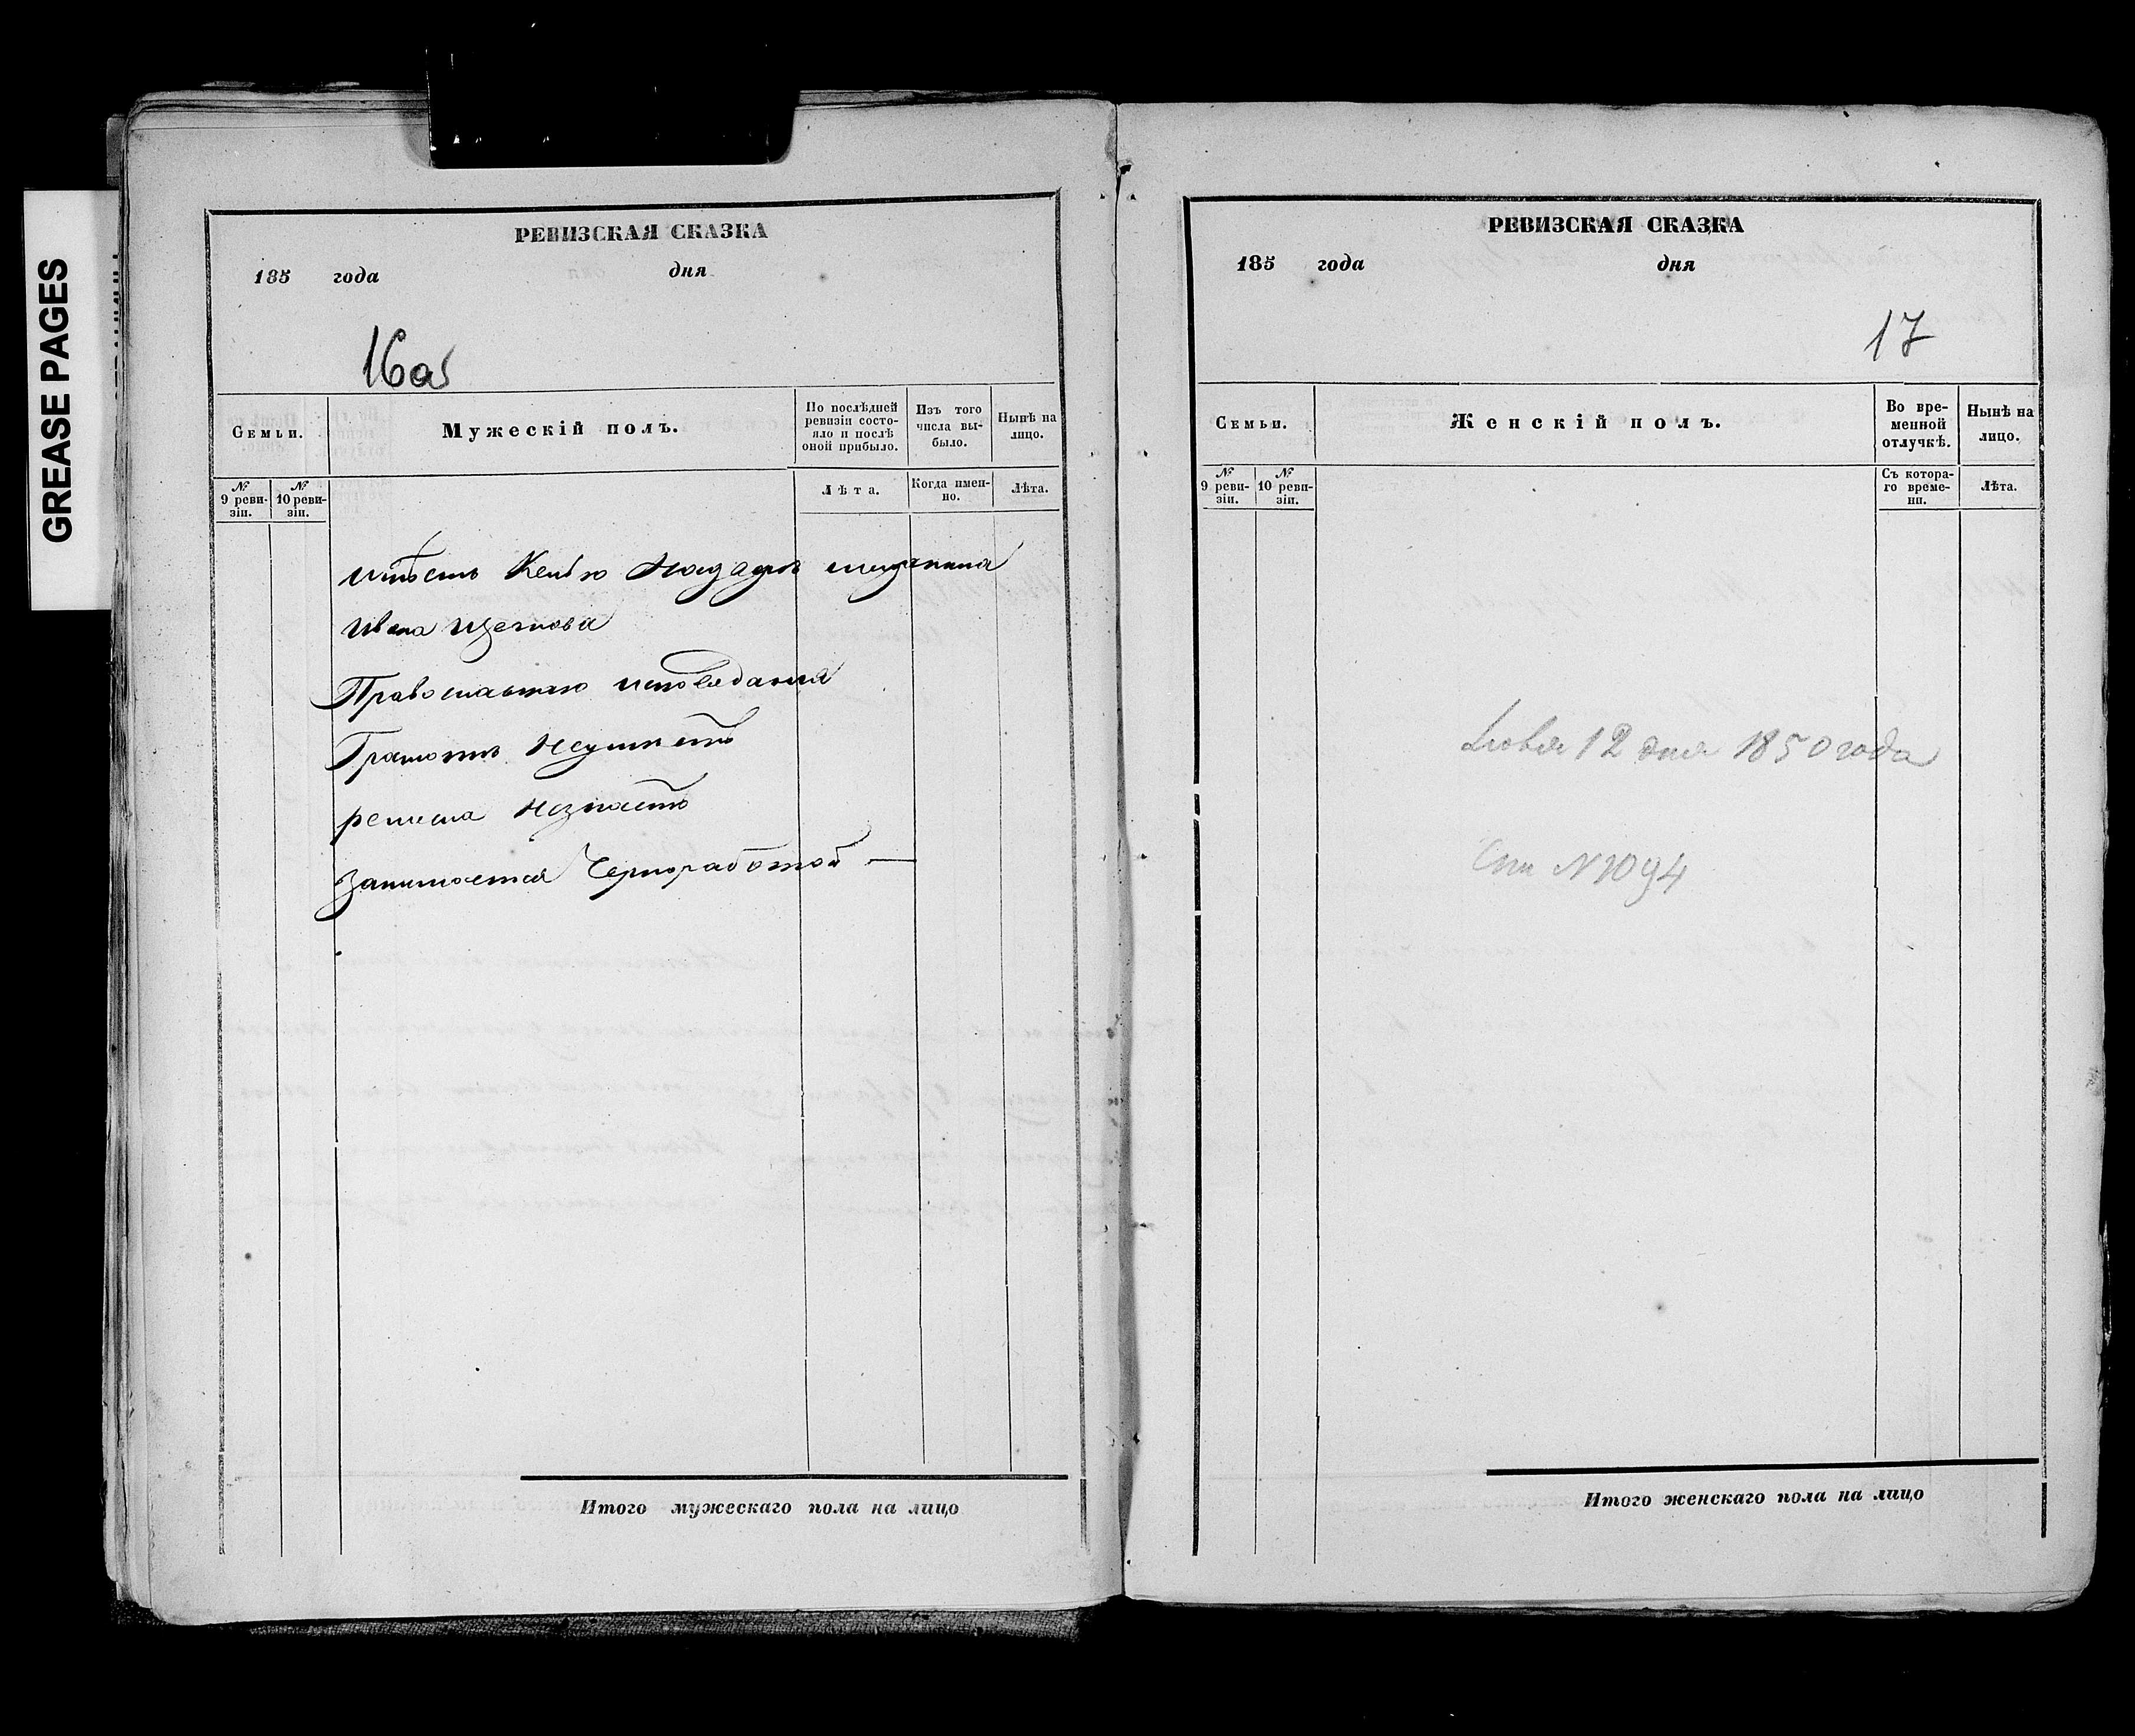 GREASE PAGES
РЕВИЗСКАЯ СКАЗКА
185 года дня
16об
Семьи.
Мужескій полъ.
По послѣдней ревизіи состояло и послѣ оной прибыло.
Изъ того числа выбыло.
Нынѣ на лицо.
№ 9 ревизіи.
№ 10 ревизіи.
Лѣта.
Когда именно.
Лѣта.
имѣетъ мещанина
Ивана
Православнаго исповеданія
Грамотѣ неумѣетъ
ремесла незнаетъ
занимается Чернработой —
Итого мужескаго пола на лицо
РЕВИЗСКАЯ СКАЗКА
185 года дня
17
Семьи.
Женскій полъ.
Во временной отлучкѣ.
Нынѣ на лицо.
№ 9 ревизіи.
№ 10 ревизіи.
Съ котораго времени.
Лѣта.
12 дня 1850 года
№ 1094
Итого женскаго пола на лицо